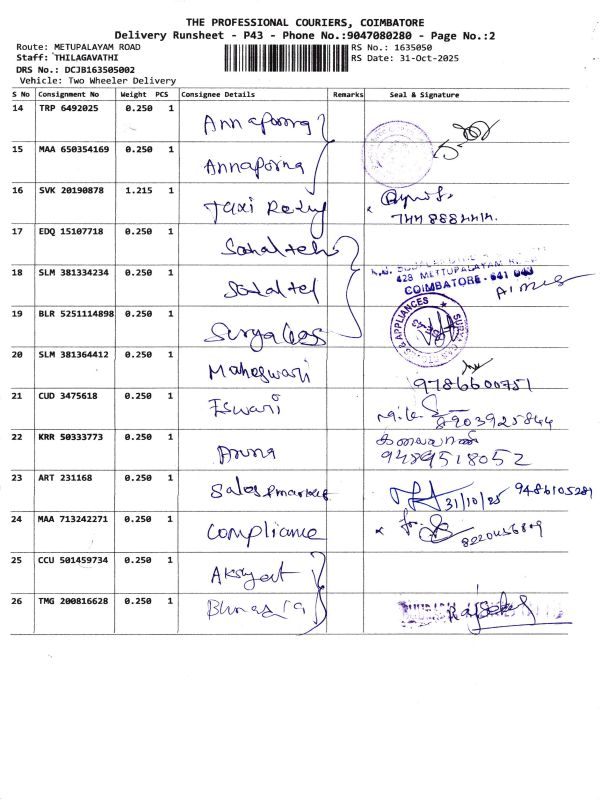 THE PROFESSIONAL COURIERS, COIMBATORE
Delivery Runsheet - P43 - Phone No.:9047080280 - Page No.:2
Route: METUPALAYAM ROAD RS No.: 1635050
Staff: THILAGAVATHI RS Date: 31-Oct-2025
DRS No.: DCJB163505002
Vehicle: Two Wheeler Delivery
S No Consignment No Weight PCS Consignee Details Remarks Seal & Signature
14 TRP 6492025 0.250 1 Annaporna
15 MAA 650354169 0.250 1 Annaporna
16 SVK 20190878 1.215 1 Taxi Redy
17 EDQ 15107718 0.250 1
18 SLM 381334234 0.250 1
428 METTUPALAYAM
COIMBATORE - 641 043
19 BLR 5251114898 0.250 1 Surya Gas
& APPLIANCES
20 SLM 381364412 0.250 1 Maheswari 9786600751
21 CUD 3475618 0.250 1 Eswari 8903925844
22 KRR 50333773 0.250 1 Aruna 9489518052
23 ART 231168 0.250 1 31/10/25 9486105281
24 MAA 713242271 0.250 1 Compliance
25 CCU 501459734 0.250 1
26 TMG 200816628 0.250 1